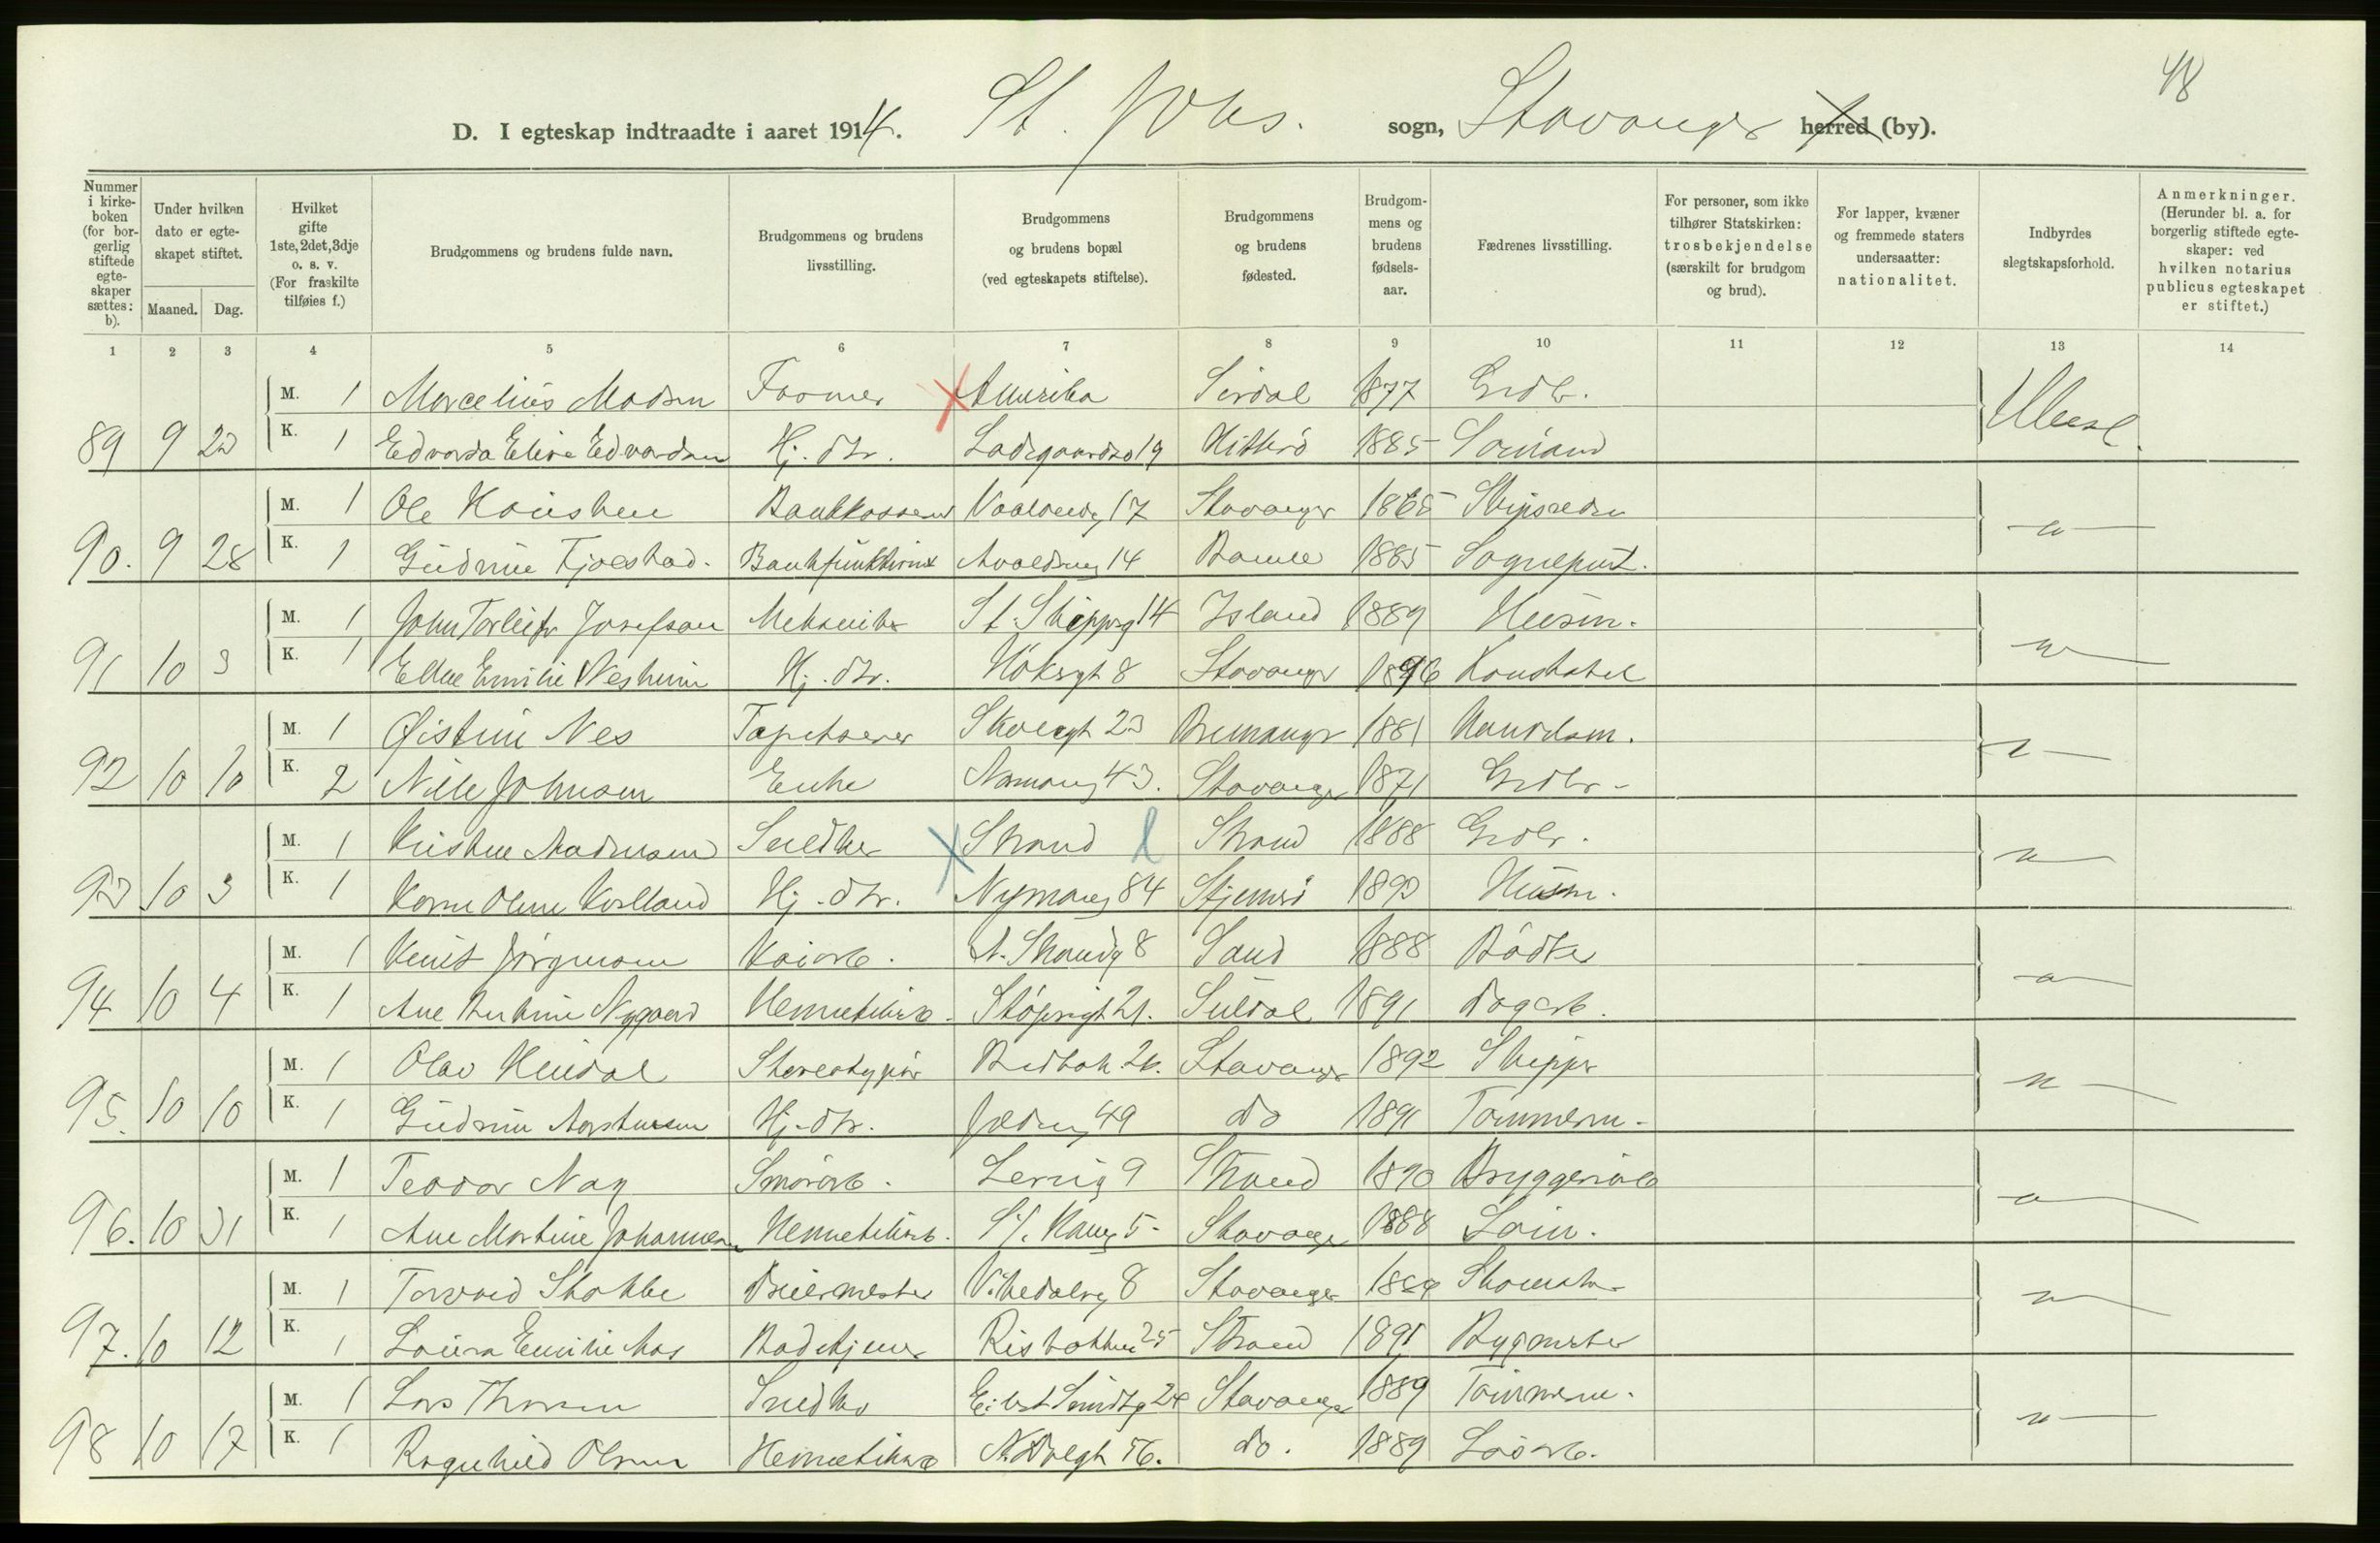 48
D. I egteskap indtraadte i aaret 1914. St. Johs. sogn, Stavanger herred (by).
Nummer i kirkeboken (for borgerlig stiftede egteskaper sættes: b).
Under hvilken dato er egteskapet stiftet.
Maaned. Dag.
Hvilket gifte 1ste, 2det, 3dje o. s. v. (For fraskilte tilføies f.)
Brudgommens og brudens fulde navn.
Brudgommens og brudens livsstilling.
Brudgommens og brudens bopæl (ved egteskapets stiftelse).
Brudgommens og brudens fødested.
Brudgommens og brudens fødselsaar.
Fædrenes livsstilling.
For personer, som ikke tilhører Statskirken: trosbekjendelse (særskilt for brudgom og brud).
For lapper, kvæner og fremmede staters undersaatter: nationalitet.
Indbyrdes slegtskapsforhold.
Anmerkninger. (Herunder bl. a. for borgerlig stiftede egteskaper: ved hvilken notarius publicus egteskapet er stiftet.)
1 2 3 4 5 6 7 8 9 10 11 12 13 14
M. 1 Marcelius Madsen Farmer Amerika Sirdal 1877 Grdbr. Ubesl.
89 9 23 K. 1 Edvarda Elise Edvardsen Hj. dtr. Ladegaardsv 19 Hitterö 1885 Sömand
M. 1 Ole Bankkasserer 17 Stavanger 1865 Skipsreder "
90. 9 28 K. 1 Gudrun Tjøestad. Bankfunktioner 14 Bamle 1885 Sogneprest.
M. 1 John Torleifr Josefsson Mekaniker St. Skipperg 14 Island 1889 Husm. "
91 10 3 K. 1 Emilie Nesheim Hj. dtr. 8 Stavanger 1896 Konstabel
M. 1 Øistein Nes Tapetserer Skolegt 23 Bremanger 1881 Handelsm. "
92 10 10 K. 2 Nille Johnsen Enke 43. Stavanger 1871 Grdbr.
M. 1 Kristen Madsen Snedker Strand l Strand 1888 Grdbr. "
93 10 3 K. 1 Karen Oline Hj. dtr. Nymansv 84 Stjernerö 1893 Husm.
M. 1 Knut Jørgensen Kaiarb. N. Strandg 8 Sand 1888 Bödker "
94 10 4 K. 1 Ane Bertine Nygaard Hermetikarb. 21. Suldal 1891 Dagarb.
M. 1 Olav Stereotypør 26. Stavanger 1892 Skipper "
95. 10 10 K. 1 Gudrun Hj. dtr. 49 do 1891 Tømmerm.
M. 1 Teodor Nag Smörarb. 9 Strand 1890 Bryggeriarb "
96. 10 31 K. 1 Ane Martine Johannesen Hermetikarb. 5 Stavanger 1888
M. 1 Torvald Stokke Dreiermester Vikedalsg 8 Stavanger Skomaker "
97. 10 12 K. 1 Laura Emilie Aas Badetjener Risbakken 25 Strand 1891 Bygmester
M. 1 Lars Thorsen Snedker 24 Stavanger 1889 Tømmerm. "
98 10 17 K. 1 Ragnhild Olsen Hermetikarb 56. do. 1889